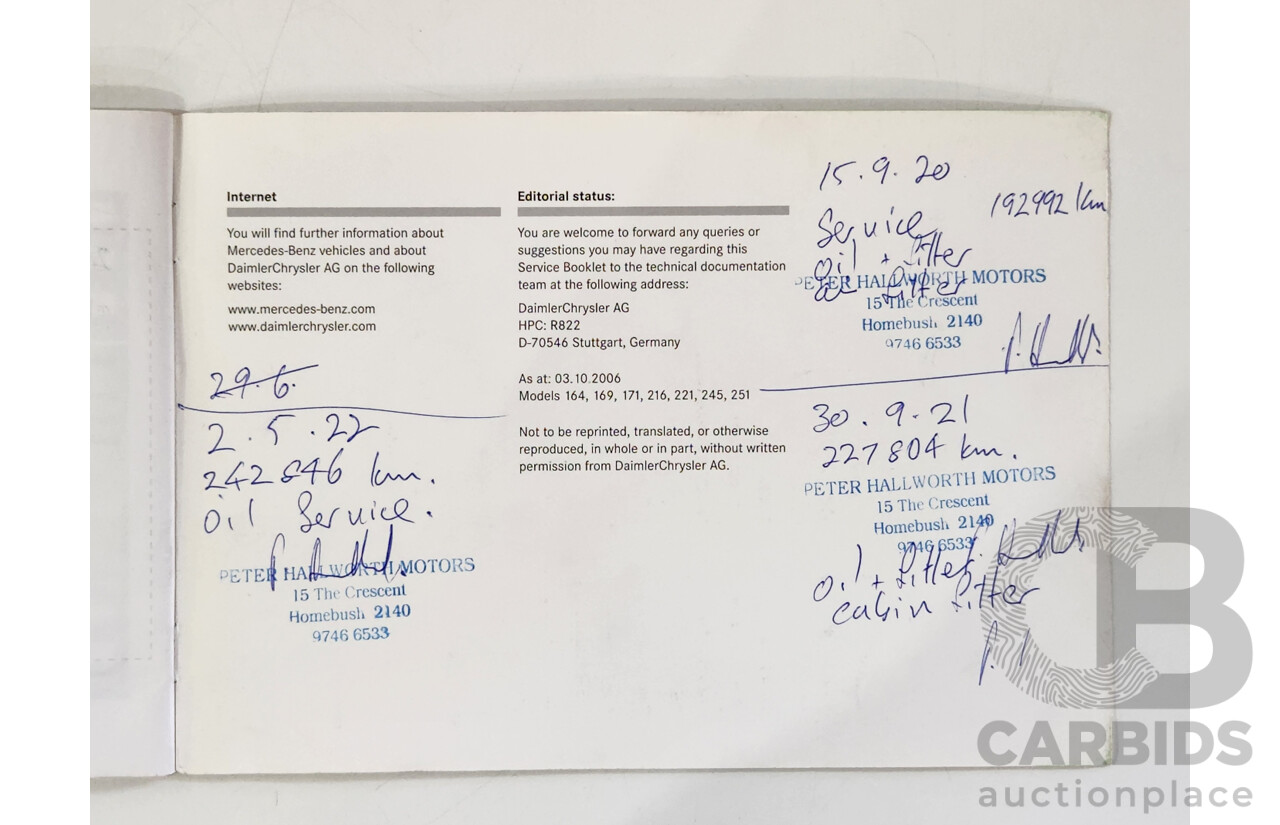 Internet
You will find further information about
Mercedes-Benz vehicles and about
DaimlerChrysler AG on the following
websites:
www.mercedes-benz.com
www.daimlerchrysler.com
29.6.
2.5.22
242846 km.
Oil Service.
PETER HALLWORTH MOTORS
15 The Crescent
Homebush 2140
9746 6533
Editorial status:
You are welcome to forward any queries or
suggestions you may have regarding this
Service Booklet to the technical documentation
team at the following address:
DaimlerChrysler AG
HPC: R822
D-70546 Stuttgart, Germany
As at: 03.10.2006
Models 164, 169, 171, 216, 221, 245, 251
Not to be reprinted, translated, or otherwise
reproduced, in whole or in part, without written
permission from DaimlerChrysler AG.
15.9.20
192992 km
Service
Oil + filter
air filter
PETER HALLWORTH MOTORS
15 The Crescent
Homebush 2140
9746 6533
30.9.21
227804 km.
PETER HALLWORTH MOTORS
15 The Crescent
Homebush 2140
9746 6533
Oil + filter
cabin filter
CARBIDS
auctionplace